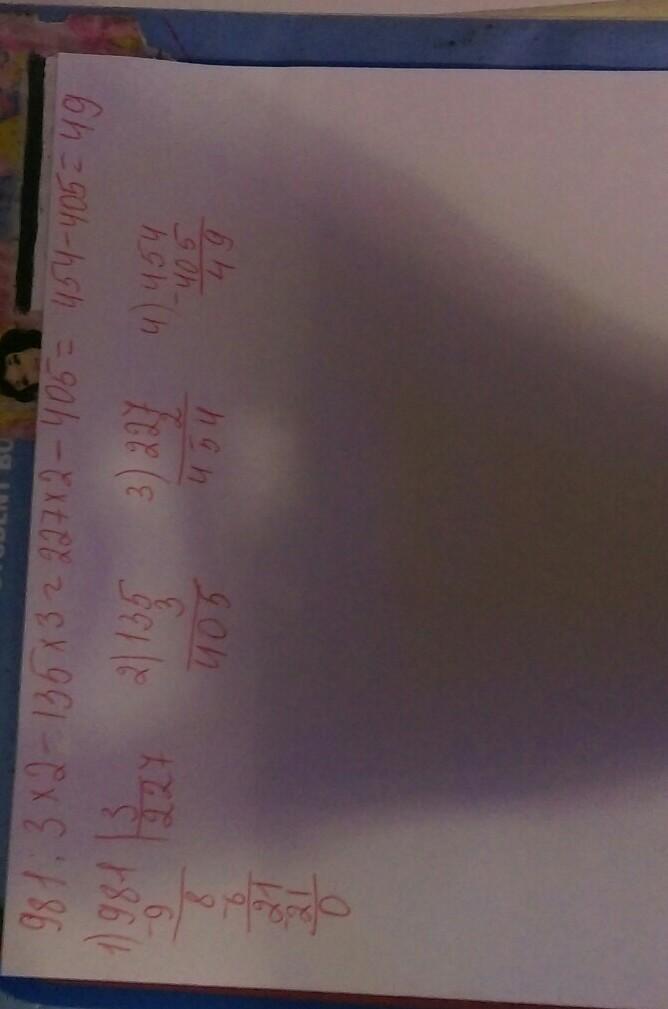 981 : 3 x 2 - 135 x 3 = 227 x 2 - 405 = 454 - 405 = 49
1) 981 | 3
227
-9
8
-6
21
-21
0
2) 135
3
405
3) 227
2
454
4) 454
-405
49